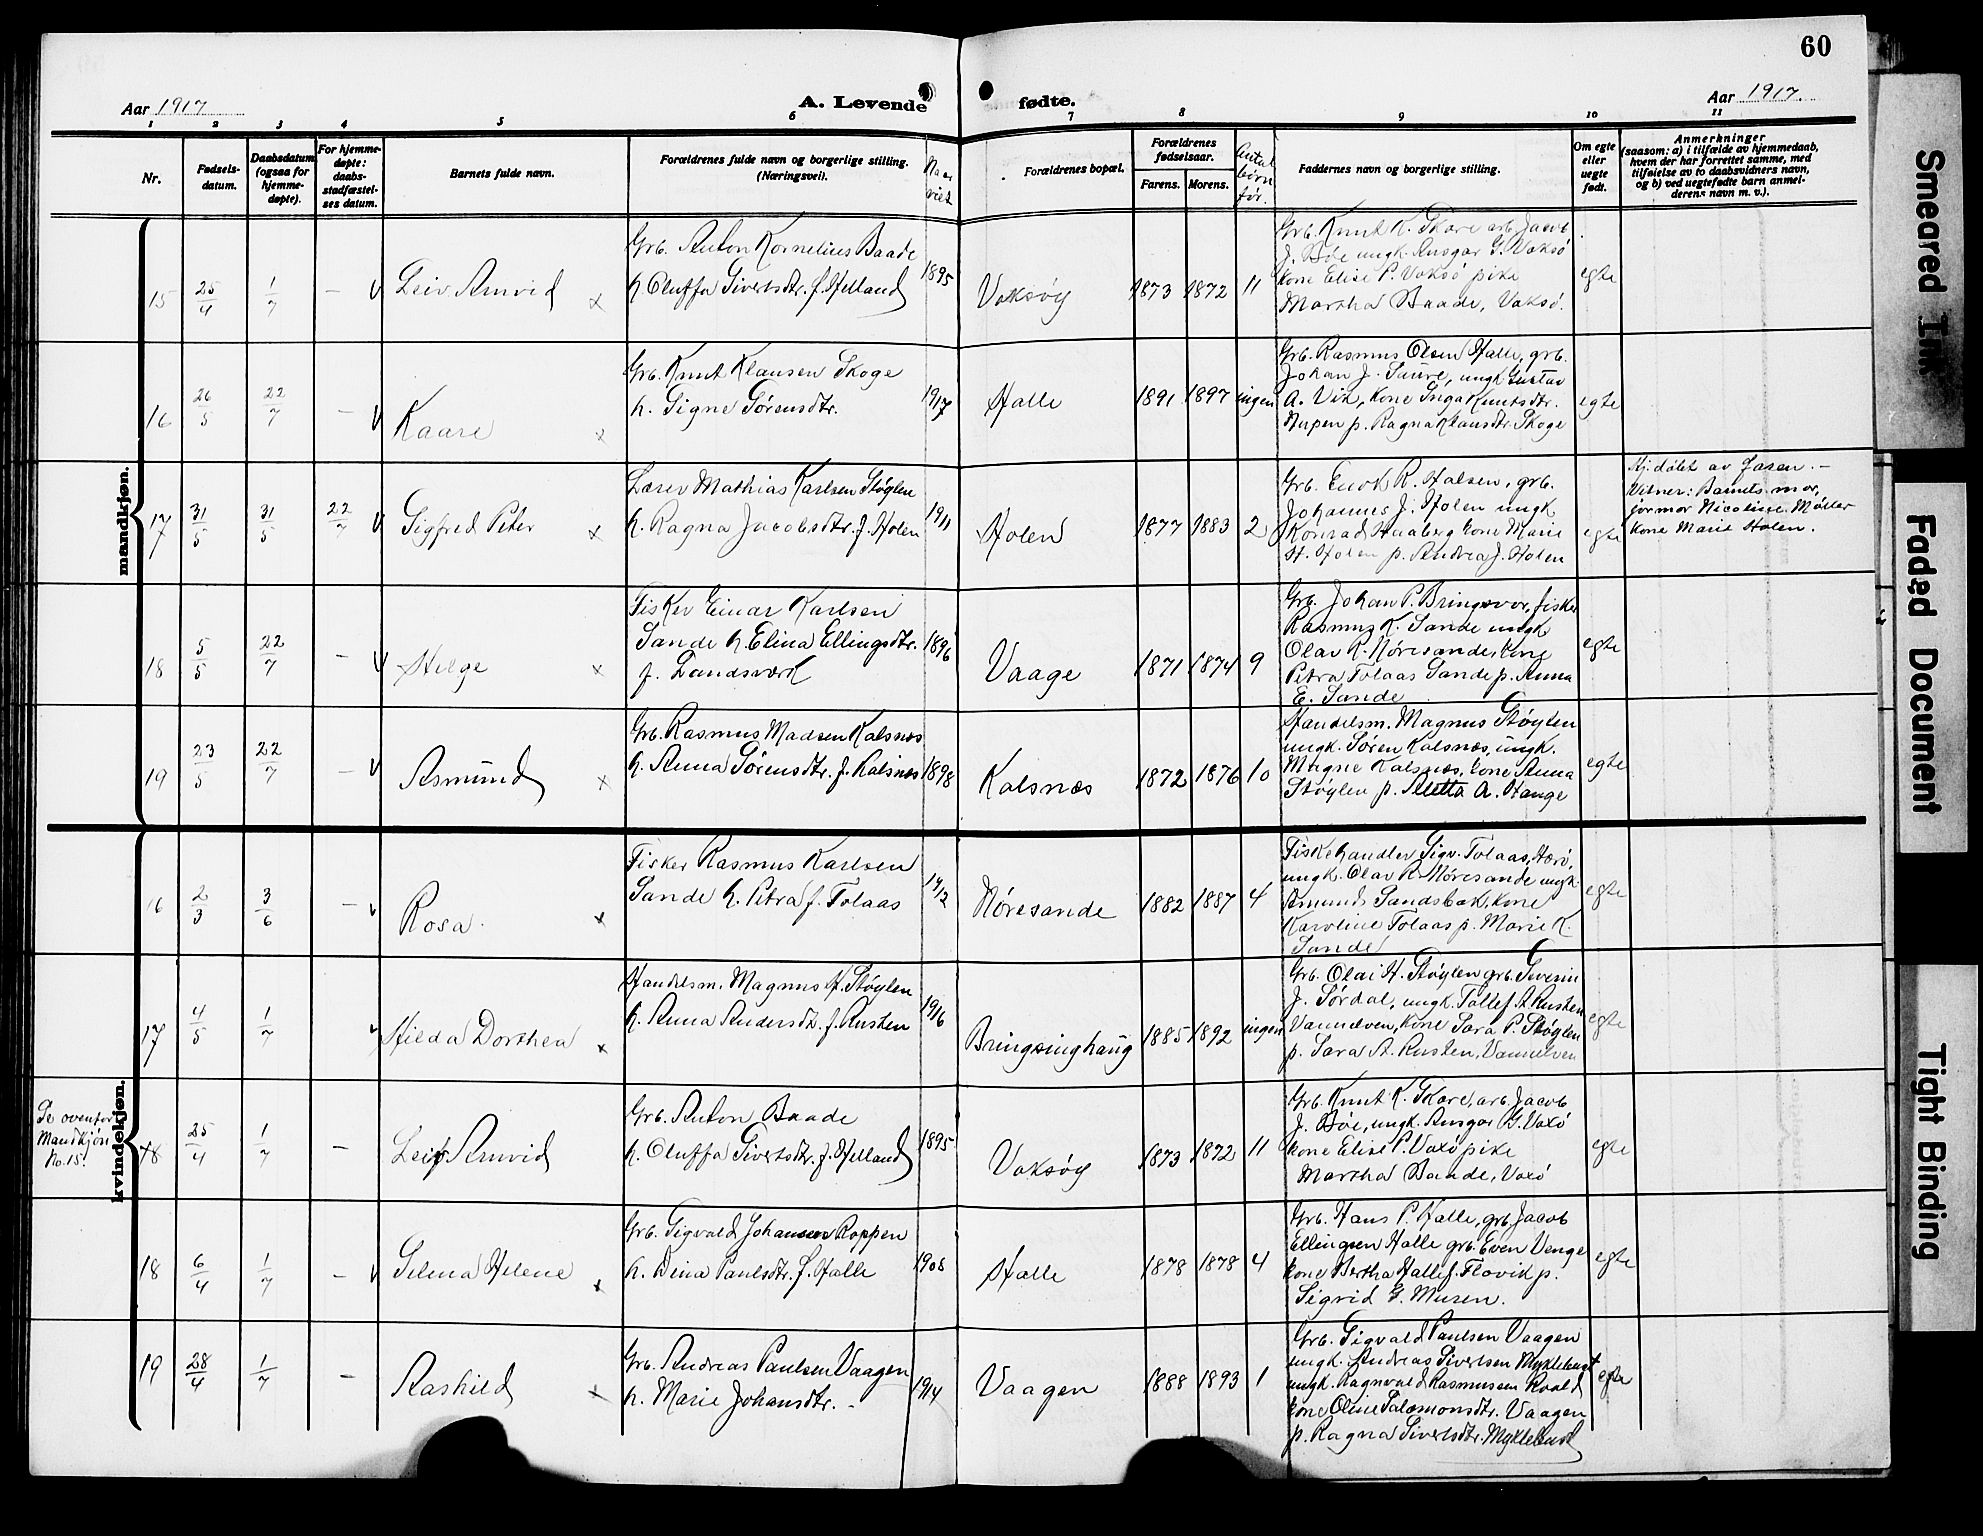 60
Aar 1917
A. Levende
fødte.
Aar 1917.
1 2 3 4 5 6 7 8 9 10 11
Nr.
Fødsels-
datum.
Daabsdatum
(ogsaa for
hjemme-
døpte).
For hjemme-
døpte:
daabs-
stadfæstel-
ses datum.
Barnets fulde navn.
Forældrenes fulde navn og borgerlige stilling.
(Næringsvei).
Naar
viet
Forældrenes bopæl.
Forældrenes
fødselsaar.
Farens. Morens.
Antal
børn
før.
Faddernes navn og borgerlige stilling.
Om egte
eller
uegte
født.
Anmerkninger
(saasom: a) i tilfælde av hjemmedaab,
hvem der har forrettet samme, med
tilføielse av to daabsvidners navn,
og b) ved uegtefødte barn anmel-
derens navn m. v.).
mandkjøn.
15 25/4 1/7 – Leiv Arnvid x
Grb. Anton Kornelius Baade
h. Oluffa Sivertsdtr. f. Helland
1895 Vaksøy 1873 1872 11
Grb. Knut K. Skare arb. Jacob
J. Bøe ungk. Ansgar G. Vaksø
kone Elise P. Vaksø pike
Martha Baade, Vaksø.
egte
16 26/5 22/7 – Kaare x
Grb. Knut Klausen Skoge
h. Signe Sørensdtr.
1917 Halle 1891 1897 ingen
Grb. Rasmus Olsen Halle, grb.
Johan J. Saure, ungk Gustav
A. Vik, kone Inga Knutsdtr.
Nupen p. Ragna Klausdtr. Skoge
egte
17 31/5 31/5 22/7 Sigfred Peter x
Lærer Mathias Karlsen Støylen
h. Ragna Jacobsdtr. f. Holen
1911 Holen 1877 1883 2
Grb. Enok R. Halsen, grb.
Johannes J. Holen ungk
Konrad Haaberg kone Marie
H. Holen p. Andrea J. Holen
egte
Hj. døbt av Jasen. –
Vitner: Barnets mor,
jormor Nicoline Møller
kone Marie Holen.
18 5/5 22/7 – Helge x
Fisker Einar Karlsen
Sande h. Elina Ellingsdtr.
f. Landsverk
1896 Vaage 1871 1874 9
Grb. Johan P. Bringsvor, fisker
Rasmus K. Sande ungk
Olav R. Nøresande, kone
Petra Tolaas Sande p. Anna
E. Sande
egte
19 23/5 22/7 – Asmund x
Grb. Rasmus Madsen Kalsnæs
h. Anna Sørensdtr. f. Kalsnæs
1898 Kalsnæs 1872 1876 10
Handelsm. Magnus Støylen
ungk. Søren Kalsnæs, ungk.
Magne Kalsnæs, kone Anna
Støylen p. A. Hauge
egte
kvindekjøn.
16 2/3 3/6 – Rosa. x
Fisker Rasmus Karlsen
Sande h. Petra f. Tolaas
1912 Nøresande 1882 1887 4
Fiskehandler Sigv. Tolaas, Herø,
ungk. Olav R. Nøresande ungk.
Amund Sandsbak, kone
Karoline Tolaas p. Marie K.
Sande
egte
17 4/5 1/7 Hilda Dorthea x
Handelsm. Magnus H. Støylen
h. Anna Andersdtr. f. Rusten
1916 Bringsinghaug 1885 1892 ingen
Grb. Olai H. Støylen grb. Severin
J. Sørdal, ungk. Tollef A. Rusten
Vanndven, kone Sara P. Støylen
p. Sara A. Rusten, Vannelven
egte
Se ovenfor
Mandkjøn
No. 15.
18 25/4 1/7 – Leif Arnvid
Grb. Anton Baade
h. Oluffa Sivertsdtr. f. Helland
1895 Vaksøy 1873 1872 11
Grb. Knut K. Skare, arb. Jacob
J. Bøe, ungk. Ansgar G. Vaxø
kone Elise P. Vaxø pike
Martha Baade, Vaxø
egte
18 6/4 1/7 – Selma Helene x
Grb. Sigvald Johansen Roppen
h. Dina Paulsdtr. f. Halle
1908 Halle 1878 1878 4
Grb. Hans P. Halle, grb. Jacob
Ellingsen Halle grb. Even Venge
kone Bertha Halle f. Flovik p.
Sigrid G. Muren.
egte
19 28/4 1/7 – Raghild x
Grb. Andreas Paulsen Vaagen
h. Marie Johansdtr. –
1914 Vaagen 1888 1893 1
Grb. Sigvald Paulsen Vaagen
ungk. Andreas Sivertsen Myklebust
ungk. Ragnvald Rasmussen Roald
kone Oline Salamonsdtr. Vaagen
p. Ragna Sivertsdtr. Myklebust
egte
Smeared Ink
Faded Document
Tight Binding